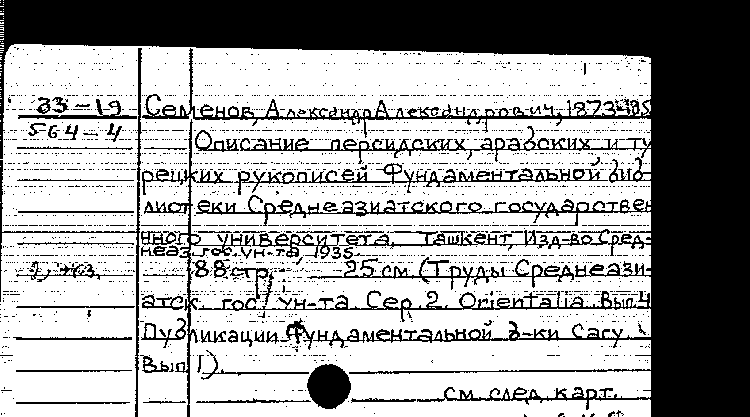 33-19
564-4
Семенов, Александр Александрович, 1873-195
Описание персидских, арабских и ту
рецких рукописей Фундаментальной биб-
лиотеки Среднеазиатского государствен
нного университета. Ташкент, Изд-во Сред-
неаз. гос. ун-та, 1935.
88 стр. 25 см. (Труды Среднеази-
атск. гос. ун-та. Сер. 2. Orientalia. Вып. 4
Публикации Фундаментальной б-ки Сагу.
Вып. 1).
см. след. карт.